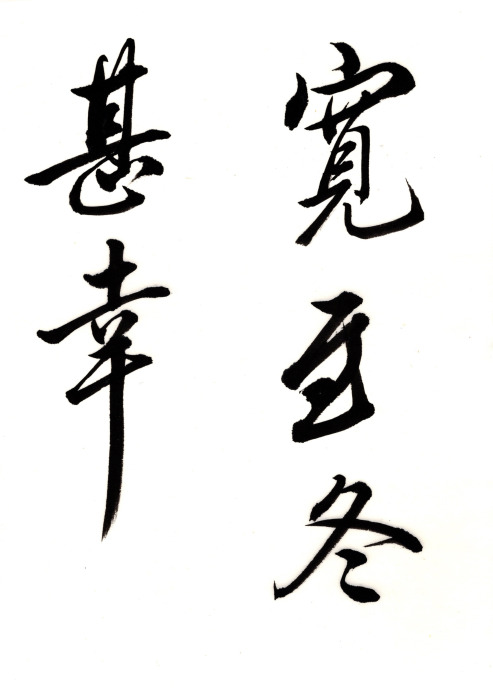 寛至冬
甚幸